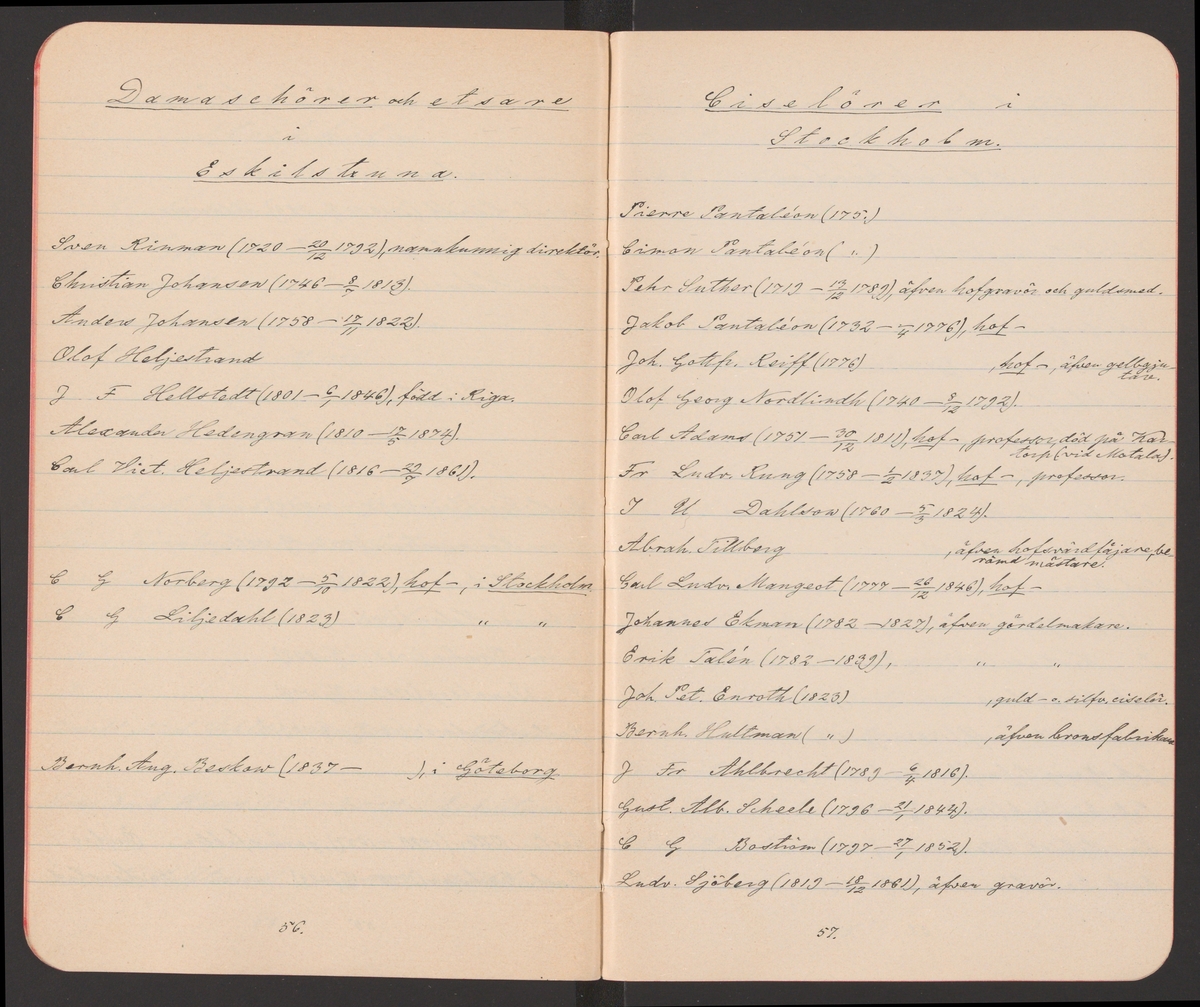 Damaschörer och etsare
i
Eskilstuna.
Sven Rinman (1720 — 20/12 1792), namnkunnig direktör.
Christian Johansen (1746 — 8/7 1813).
Anders Johansen (1758 — 17/11 1822).
Olof Heljestrand
J F Hellstedt (1801 — 6/1 1846), född i Riga.
Alexander Hedengran (1810 — 17/5 1874).
Carl Vict. Heljestrand (1816 — 22/7 1861).
C G Norberg (1792 — 5/10 1822), hof-, i Stockholm.
C G Liljedahl (1823) " "
Bernh. Aug. Beskow (1837 — ), i Göteborg
56.
Ciselörer i
Stockholm.
Pierre Pantaléon (175.)
Cimon Pantaléon ( " )
Pehr Suther (1719 — 13/12 1789), äfven hofgravör och guldsmed.
Jakob Pantaléon (1732 — /4 1776), hof-
Joh. Gottfr. Reiff (1776) , hof-, äfven gelbgju-
tare.
Olof Georg Nordlindh (1740 — 8/12 1792).
Carl Adams (1751 — 30/12 1811), hof-, professor, död på Kar-
torp (vid Motala).
Fr Ludv. Rung (1758 — 1/2 1837), hof-, professor.
I U Dahlson (1760 — 5/3 1824).
Abrah. Tillberg , äfven hofsvärdfäjare, be-
römd mästare.
Carl Ludv. Mangeot (1777 — 26/12 1846), hof-
Johannes Ekman (1782 — 1827), äfven gördelmakare.
Erik Talén (1782 — 1839), " "
Joh. Pet. Enroth (1823) , guld- o. silfv. ciselör.
Bernh. Hultman ( " ) , äfven bronsfabrikan
J Fr Ahlbrecht (1789 — 6/4 1816).
Gust. Alb. Scheele (1796 — 21/1 1844).
C G Boström (1797 — 27/1 1852).
Ludv. Sjöberg (1819 — 18/12 1861), äfven gravör.
57.